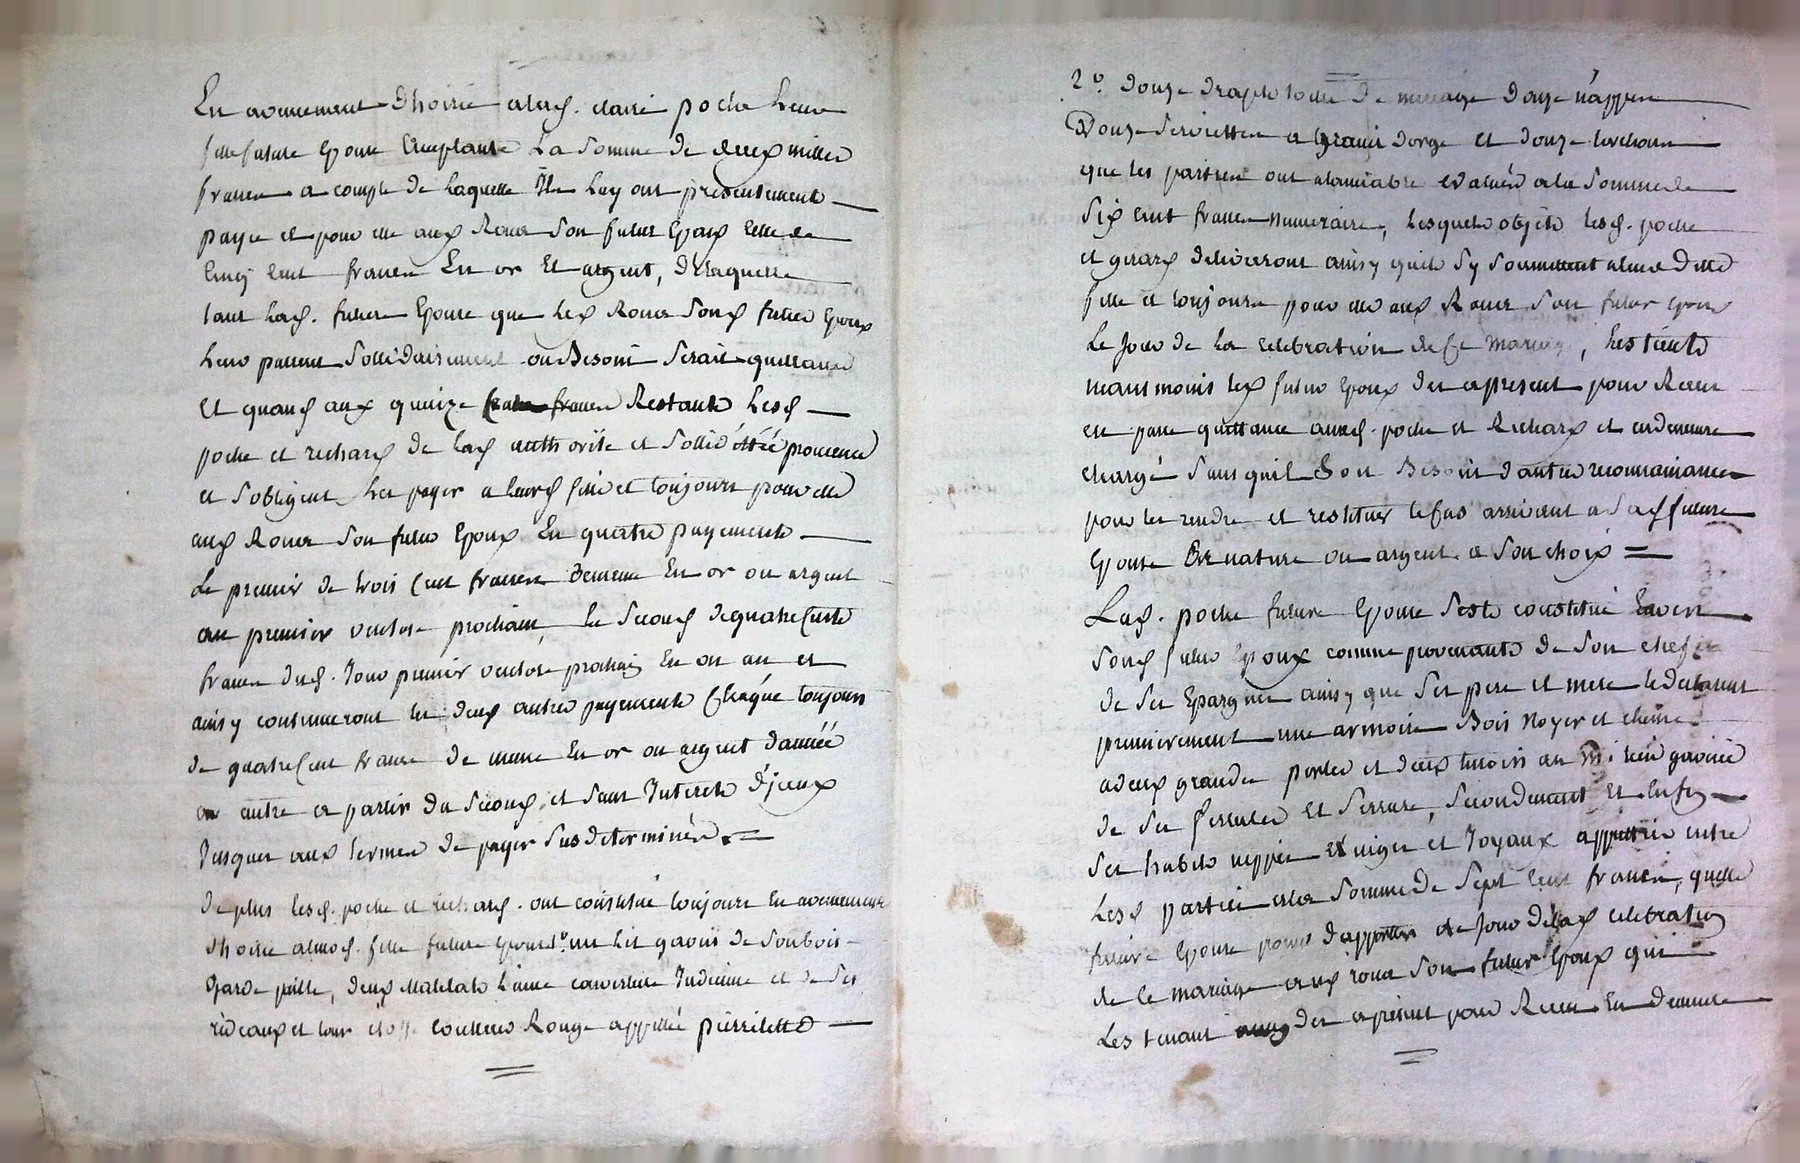 En avancement d'hoirie alad. claire poche leur
fille future Epouse acceptante La Somme de deux mille
francs a compte de laquelle Ils luy ont presentement
payé et pour elle aux Roux Son futur Epoux celle de
Cinq cent francs En or Et argent, de laquelle
tant lad. future Epouse que led Roux Son d futur Epoux
leur passent Sollidairement ou Besoint Serait quittance
Et quand aux quinze Cents francs Restants Lesd
poche et richard de lad authorisée et Sollid
et S'obligent les payer a leurd fille et toujours pour elle
aud Roux Son futur Epoux En quatre payements
Le premier de trois Cent francs En or ou argent
au premier ventose prochain, le Second de quatre Cents
francs dud. Jour premier ventose prochain En un an et
ainsy continueront les deux autres payements Chaque toujours
de quatre Cent francs de meme En or ou argent d'année
en autre a partir du Second, et Sans Interets d'jceux
Jusques aux termes de payer Sus determinés. =
de plus lesd. poche et richard. ont constitué toujours En avancement
dhoirie aleurd. fille future Epouse 1° un Lit garni de Son bois
Garde paille, deux Matelats Laine couverture Indienne et de Ses
rideaux et tour couleur Rouge appellé pierrelatte
2°. douze draps toille de menage douze nappes
Douze Serviettes a grain dorge et douze torchons
que les parties ont alamiable evalués ala Somme de
Six cent francs numeraire, Lesquels objets lesd. poche
et girard delivreront ainsy quils Sy Soumettent aleurd ditte
fille et toujours pour elle aud Roux Son futur epoux
Le Jour de la celebration de Ce Mariage, les tient
neantmoins led futur Epoux des apresent pour Recus
en passe quittance auxd. poche et Richard et en demeure
chargé Sans quil Soit Besoin d'autre reconnaissance
pour les rendre et restituer le cas arrivant a Sad future
Epouse En nature ou argent a Son choix =
Lad. poche future Epouse S'est constitué Envers
Sond futur Epoux comme provenants de Son chef
de Ses Epargnes ainsy que Ses pere et mere le declarent
premierement une armoire Bois Noyer et chêne
a deux grandes portes et deux tiroirs au milieu garnie
de Ses ferrures et Serrure, Secondement Et Enfin
Ses habits nippes et linges et Joyaux entre
Les d parties ala Somme de Sept Cent francs, quelle
future Epouse le Jour de lad celebration
de Ce mariage aux roux Son futur Epoux qui
Les tenant des apresent pour Recus En demeure